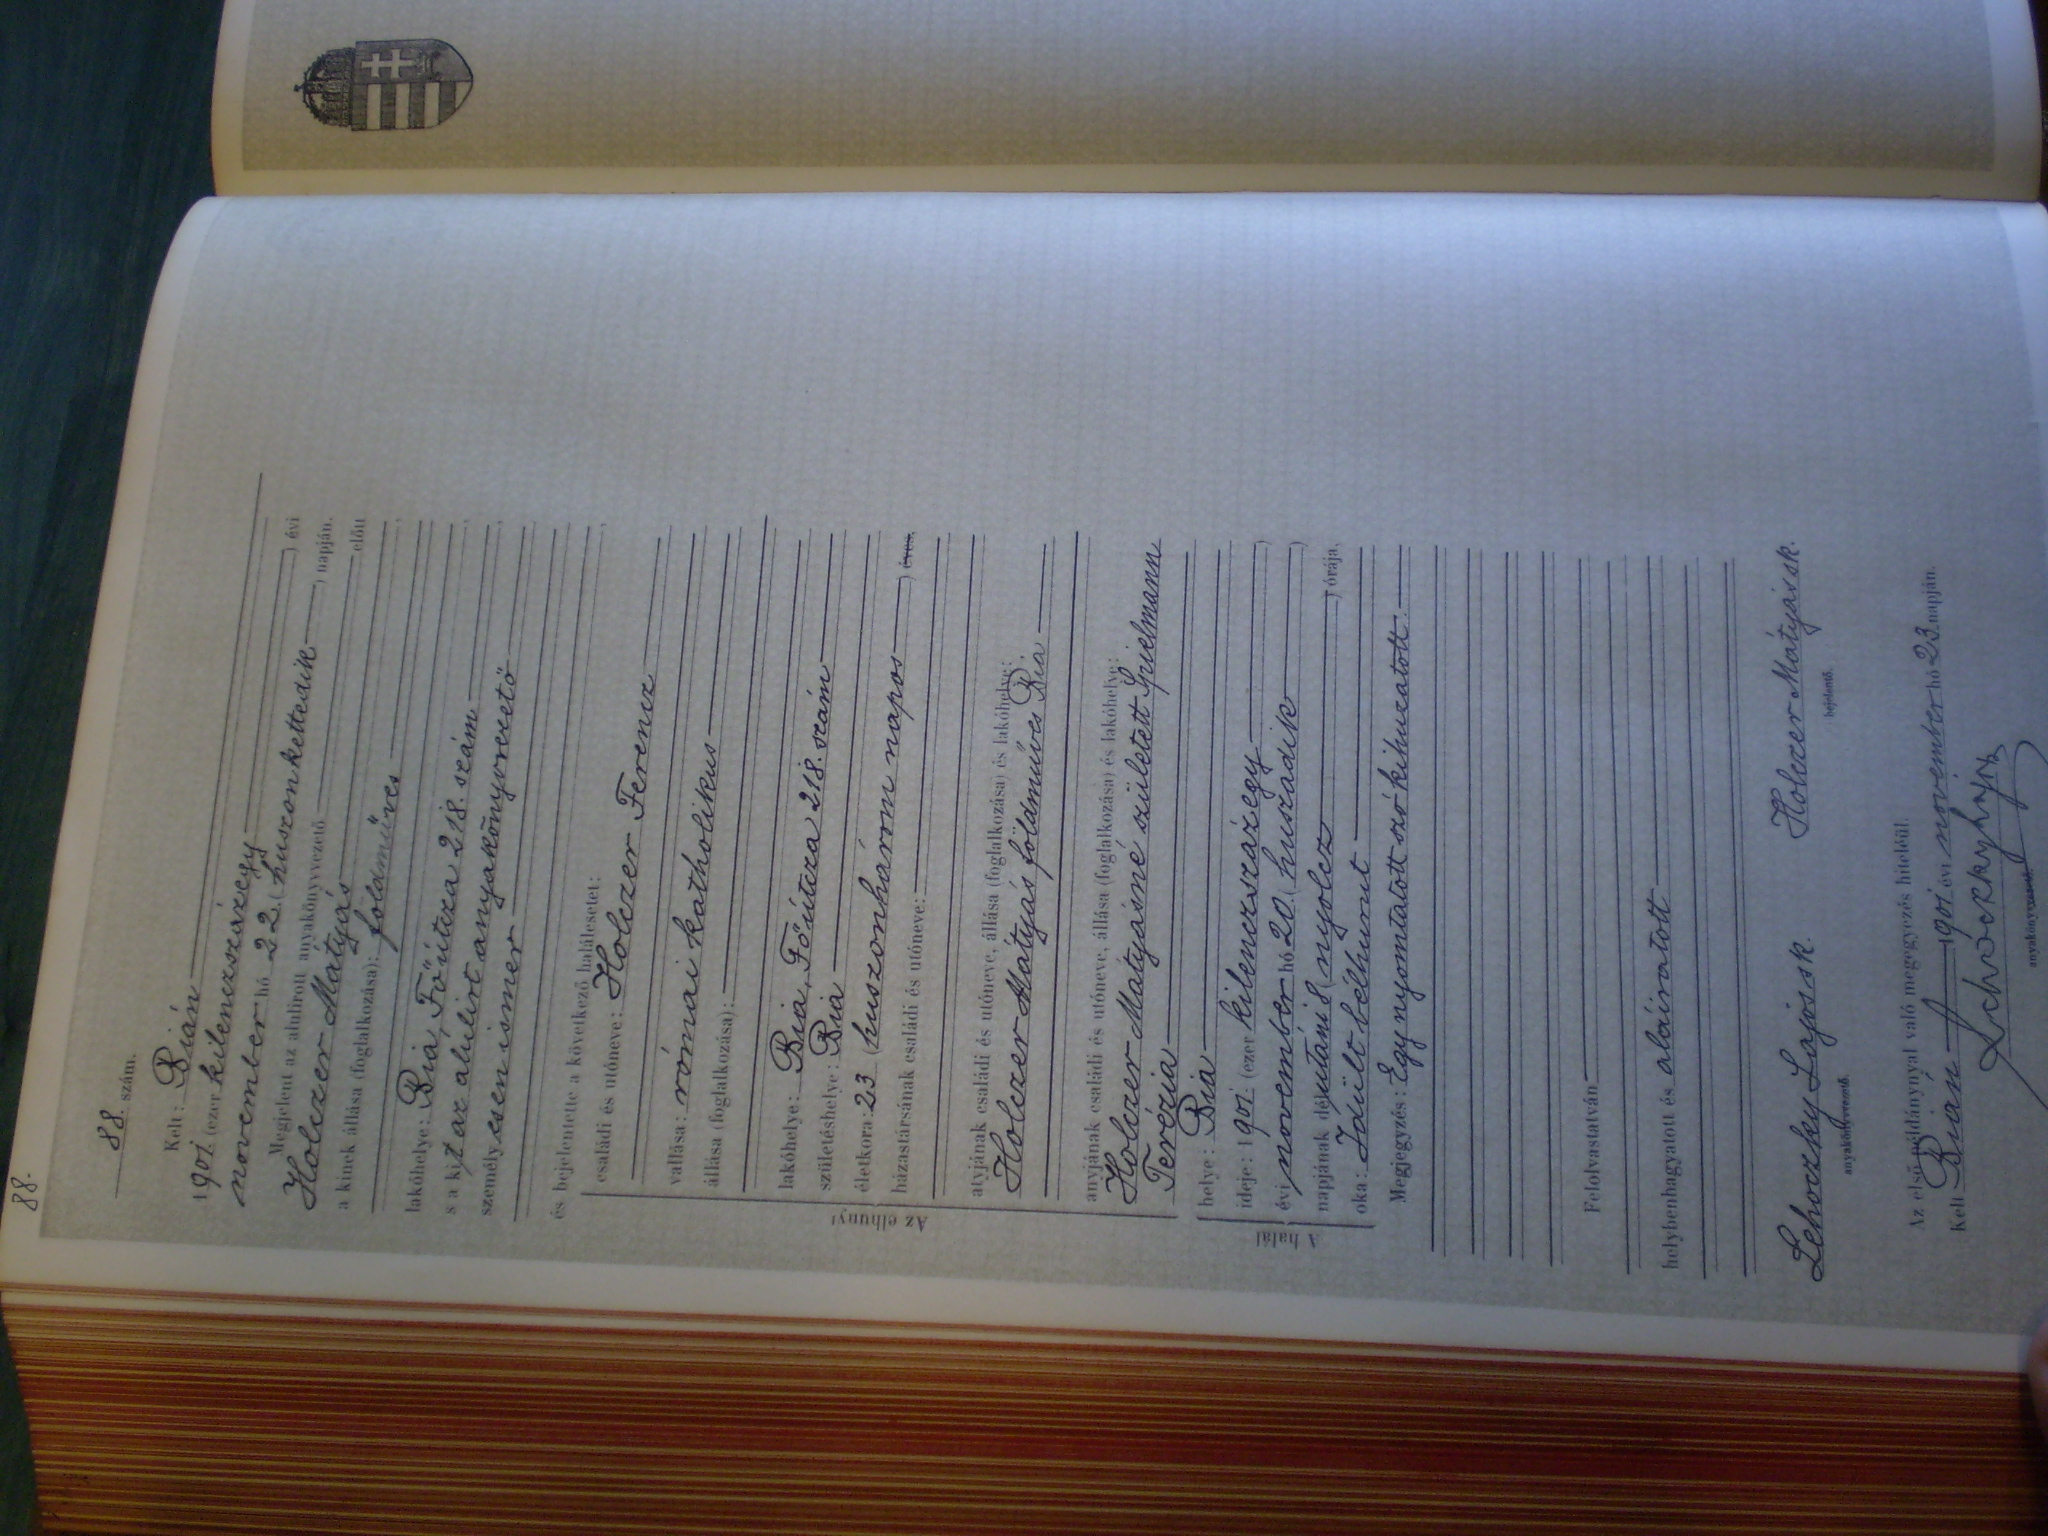 88.
88 szám.
Kelt: Bián
1901. (ezer kilenczszázegy
november hó 22. (huszonkettedik ) évi
Megjelent az alulírott anyakönyvezető ) napján.
Holczer Mátyás előtt
a kinek állása (foglalkozása): földmüves
lakóhelye: Bia, Főútcza 218. szám,
s a kit az alulirt anyakönyvvezető
személyesen ismer
és bejelentette a következő halálesetet:
Az elhunyt
családi és utóneve: Holczer Ferencz
vallása: római katholikus
állása (foglalkozása):
lakóhelye: Bia, Főútcza 218. szám
születéshelye: Bia
életkora: 23 (huszonhárom napos ) éves,
házastársának családi és utóneve:
atyjának családi és utóneve, állása (foglalkozása) és lakóhelye:
Holczer Mátyás földműves Bia
anyjának családi és utóneve, állása (foglalkozása) és lakóhelye:
Holczer Mátyásné született Spielmann
Terézia
A halál
helye: Bia
ideje: 1901. (ezer kilenczszázegy )
évi november hó 20. (huszadik )
napjának délutáni 8 (nyolcz ) órája,
oka: Idült bélhurut
Megjegyzés: Egy nyomtatott szó kihuzatott.
Felolvastatván
helybenhagyatott és aláiratott
Lehoczky Lajos sk. Holczer Mátyás sk.
anyakönyvvezető. bejelentő.
Az első példánynyal való megegyezés hiteléül.
Kelt Bián 1901 évi november hó 23 napján.
anyakönyvvezető.